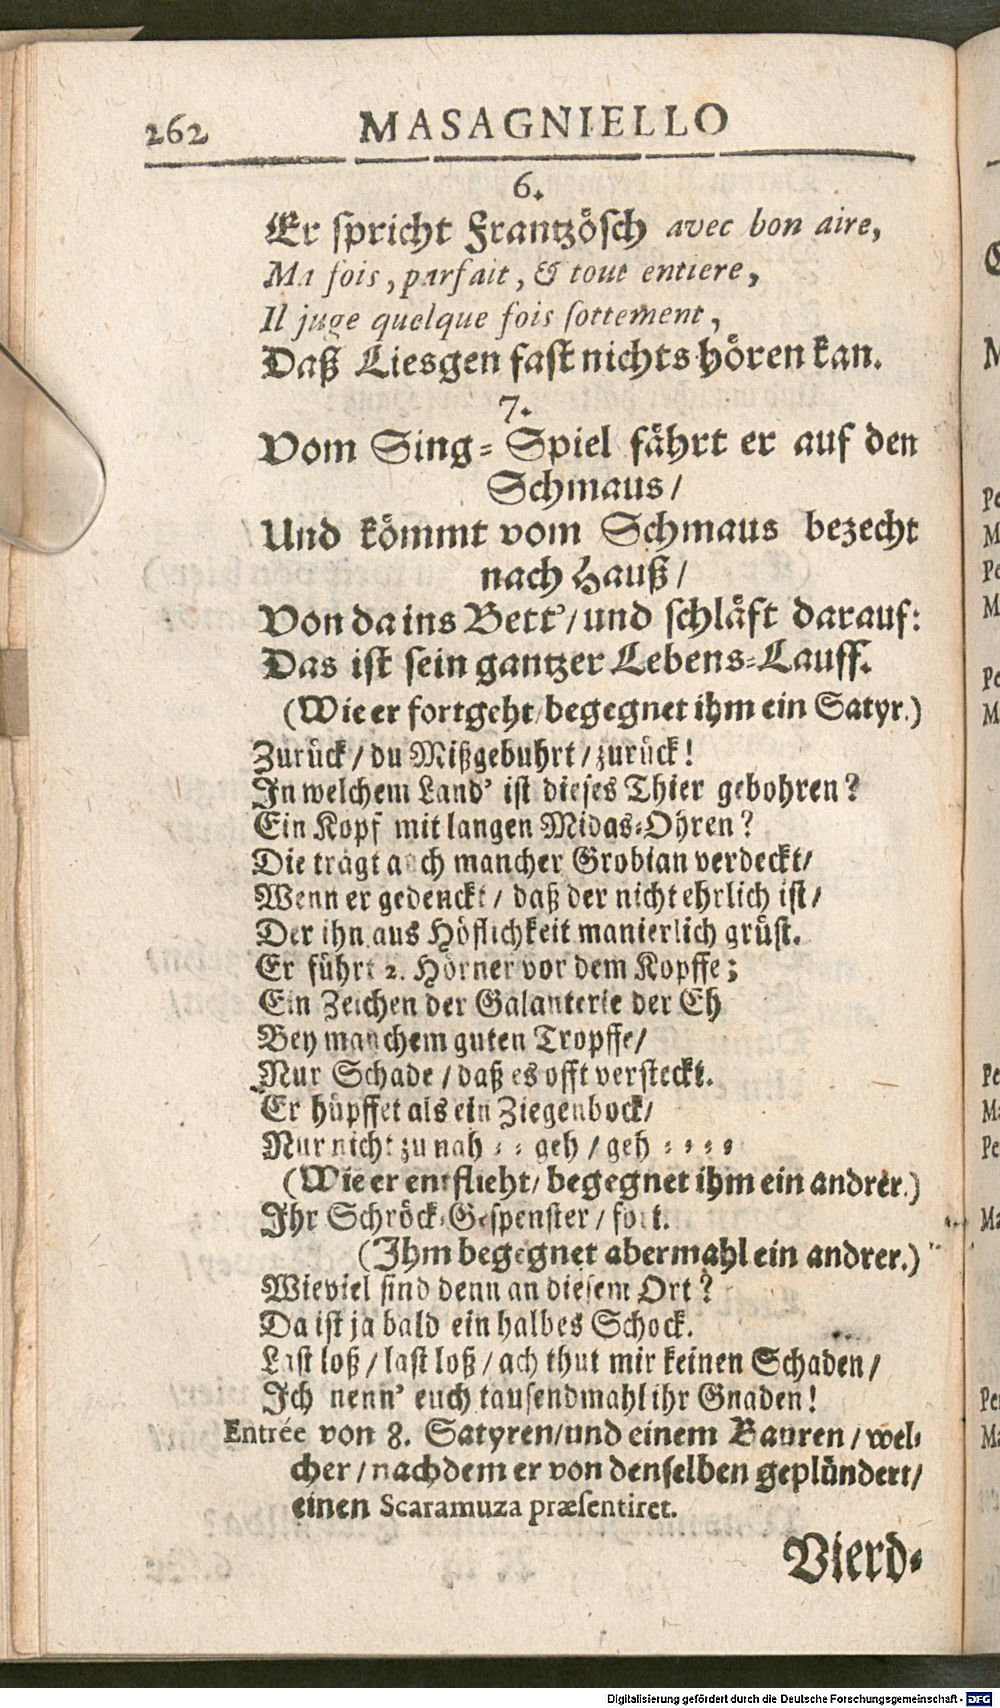 262 MASAGNIELLO
6.
Er spricht Frantzösch avec bon aire,
Ma fois, parfait, & tout entiere,
Il juge quelque fois sottement,
Daß Liesgen fast nichts hören kan.
7.
Vom Sing-Spiel fährt er auf den
Schmaus/
Und kömmt vom Schmaus bezecht
nach Hauß/
Von da ins Bett'/und schläft darauf:
Das ist sein gantzer Lebens-Lauff.
(Wie er fortgeht/begegnet ihm ein Satyr.)
Zurück/du Mißgebuhrt/zurück!
In welchem Land' ist dieses Thier gebohren?
Ein Kopf mit langen Midas-Ohren?
Die trägt auch mancher Grobian verdeckt/
Wenn er gedenckt/daß der nicht ehrlich ist/
Der ihn aus Höflichkeit manierlich grüst.
Er führt 2. Hörner vor dem Kopffe;
Ein Zeichen der Galanterie der Eh
Bey manchem guten Tropffe/
Nur Schade/daß es offt versteckt.
Er hüpffet als ein Ziegenbock/
Nur nicht zu nah - - geh/geh - - - -
(Wie er entflieht/begegnet ihm ein andrer.)
Ihr Schröck-Gespenster/fort.
(Ihm begegnet abermahl ein andrer.)
Wieviel sind denn an diesem Ort?
Da ist ja bald ein halbes Schock.
Last loß/last loß/ach thut mir keinen Schaden/
Ich nenn' euch tausendmahl ihr Gnaden!
Entrée von 8. Satyren/und einem Bauren/wel-
cher/nachdem er von denselben geplündert/
einen Scaramuza præsentiret.
Vierd-
Digitalisierung gefördert durch die Deutsche Forschungsgemeinschaft - DFG